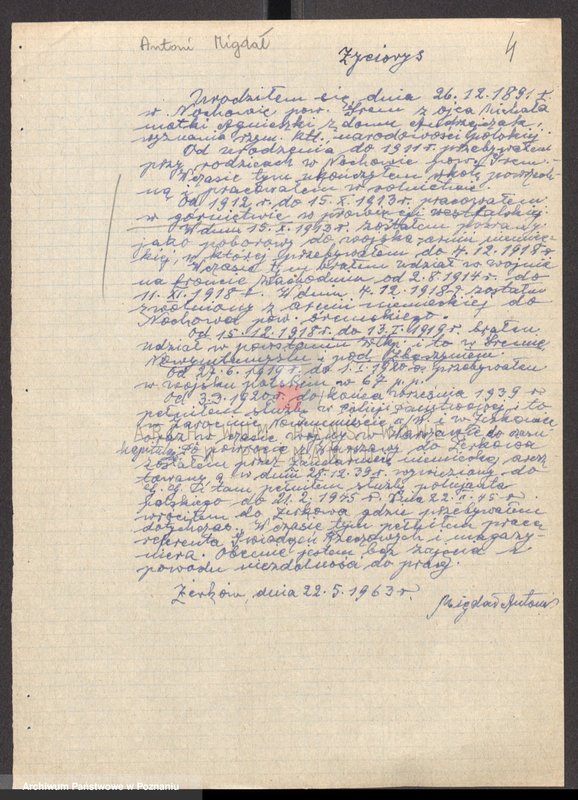 Antoni Migdał
4
Życiorys
Urodziłem się dnia 26.12.1891 r.
w Nochowie pow. Śrem z ojca Michała
matki Agnieszki z domu Andrzejczak
wyznania rzym. kat. narodowości polskiej.
Od urodzenia do 1911 r. przebywałem
przy rodzicach w Nochowie pow. Śrem.-
W czasie tym ukończyłem szkołę powszech-
ną i pracowałem w rolnictwie.
Od 1912 r. do 15.X.1913 r. pracowałem
w górnictwie w prowincji westfalskiej.
W dniu 15.X.1913 r. zostałem powołany
jako poborowy do wojska armii niemiec-
kiej, w której przebywałem do 4.12.1918 r.
W czasie tym brałem udział w wojnie
na froncie zachodnim od 2.8.1914 r. do
11.XI.1918 r. W dniu 4.12.1918 r. zostałem
zwolniony z armii niemieckiej do
Nochowa pow. śremskiego.
Od 15.12.1918 r. do 13.I.1919 r. brałem
udział w powstaniu Wlkp. i to w Śremie
Nowymtomyślu i pod Zbąszyniem.
Od 27.6.1919 r. do 1.I.1920 r. przebywałem
w wojsku polskim w 67 p.p.
Od 3.3.1920 r. do końca września 1939 r.
pełniłem służbę w Policji Państwowej i to
w Jarocinie, Nowymmieście n/W. i w Żerkowie
oraz w czasie wojny w Warszawie do czasu
kapitulacji. Po powrocie z Warszawy do Żerkowa
zostałem przez żandarmerię niemiecką aresz-
towany a w dniu 12.39 r. wywieziony do
G.G. i tam pełniłem służbę policjanta
polskiego do 21.2.1945 r. Dnia 22.2.45 r.
wróciłem do Żerkowa gdzie przebywałem
dotychczas. W czasie tym pełniłem pracę
referenta Świadczeń Rzeczowych i magazy-
niera. Obecnie jestem bez zajęcia z
powodu niezdolności do pracy.
Żerków, dnia 22.5.1963 r.
Migdał Antoni
Archiwum Państwowe w Poznaniu